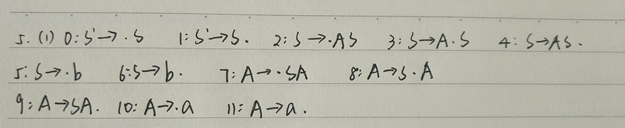 5. (1) 0: S'→·S 1: S'→S. 2: S→·AS 3: S→A·S 4: S→AS.
5: S→·b 6: S→b. 7: A→·SA 8: A→S·A
9: A→SA. 10: A→·a 11: A→a.